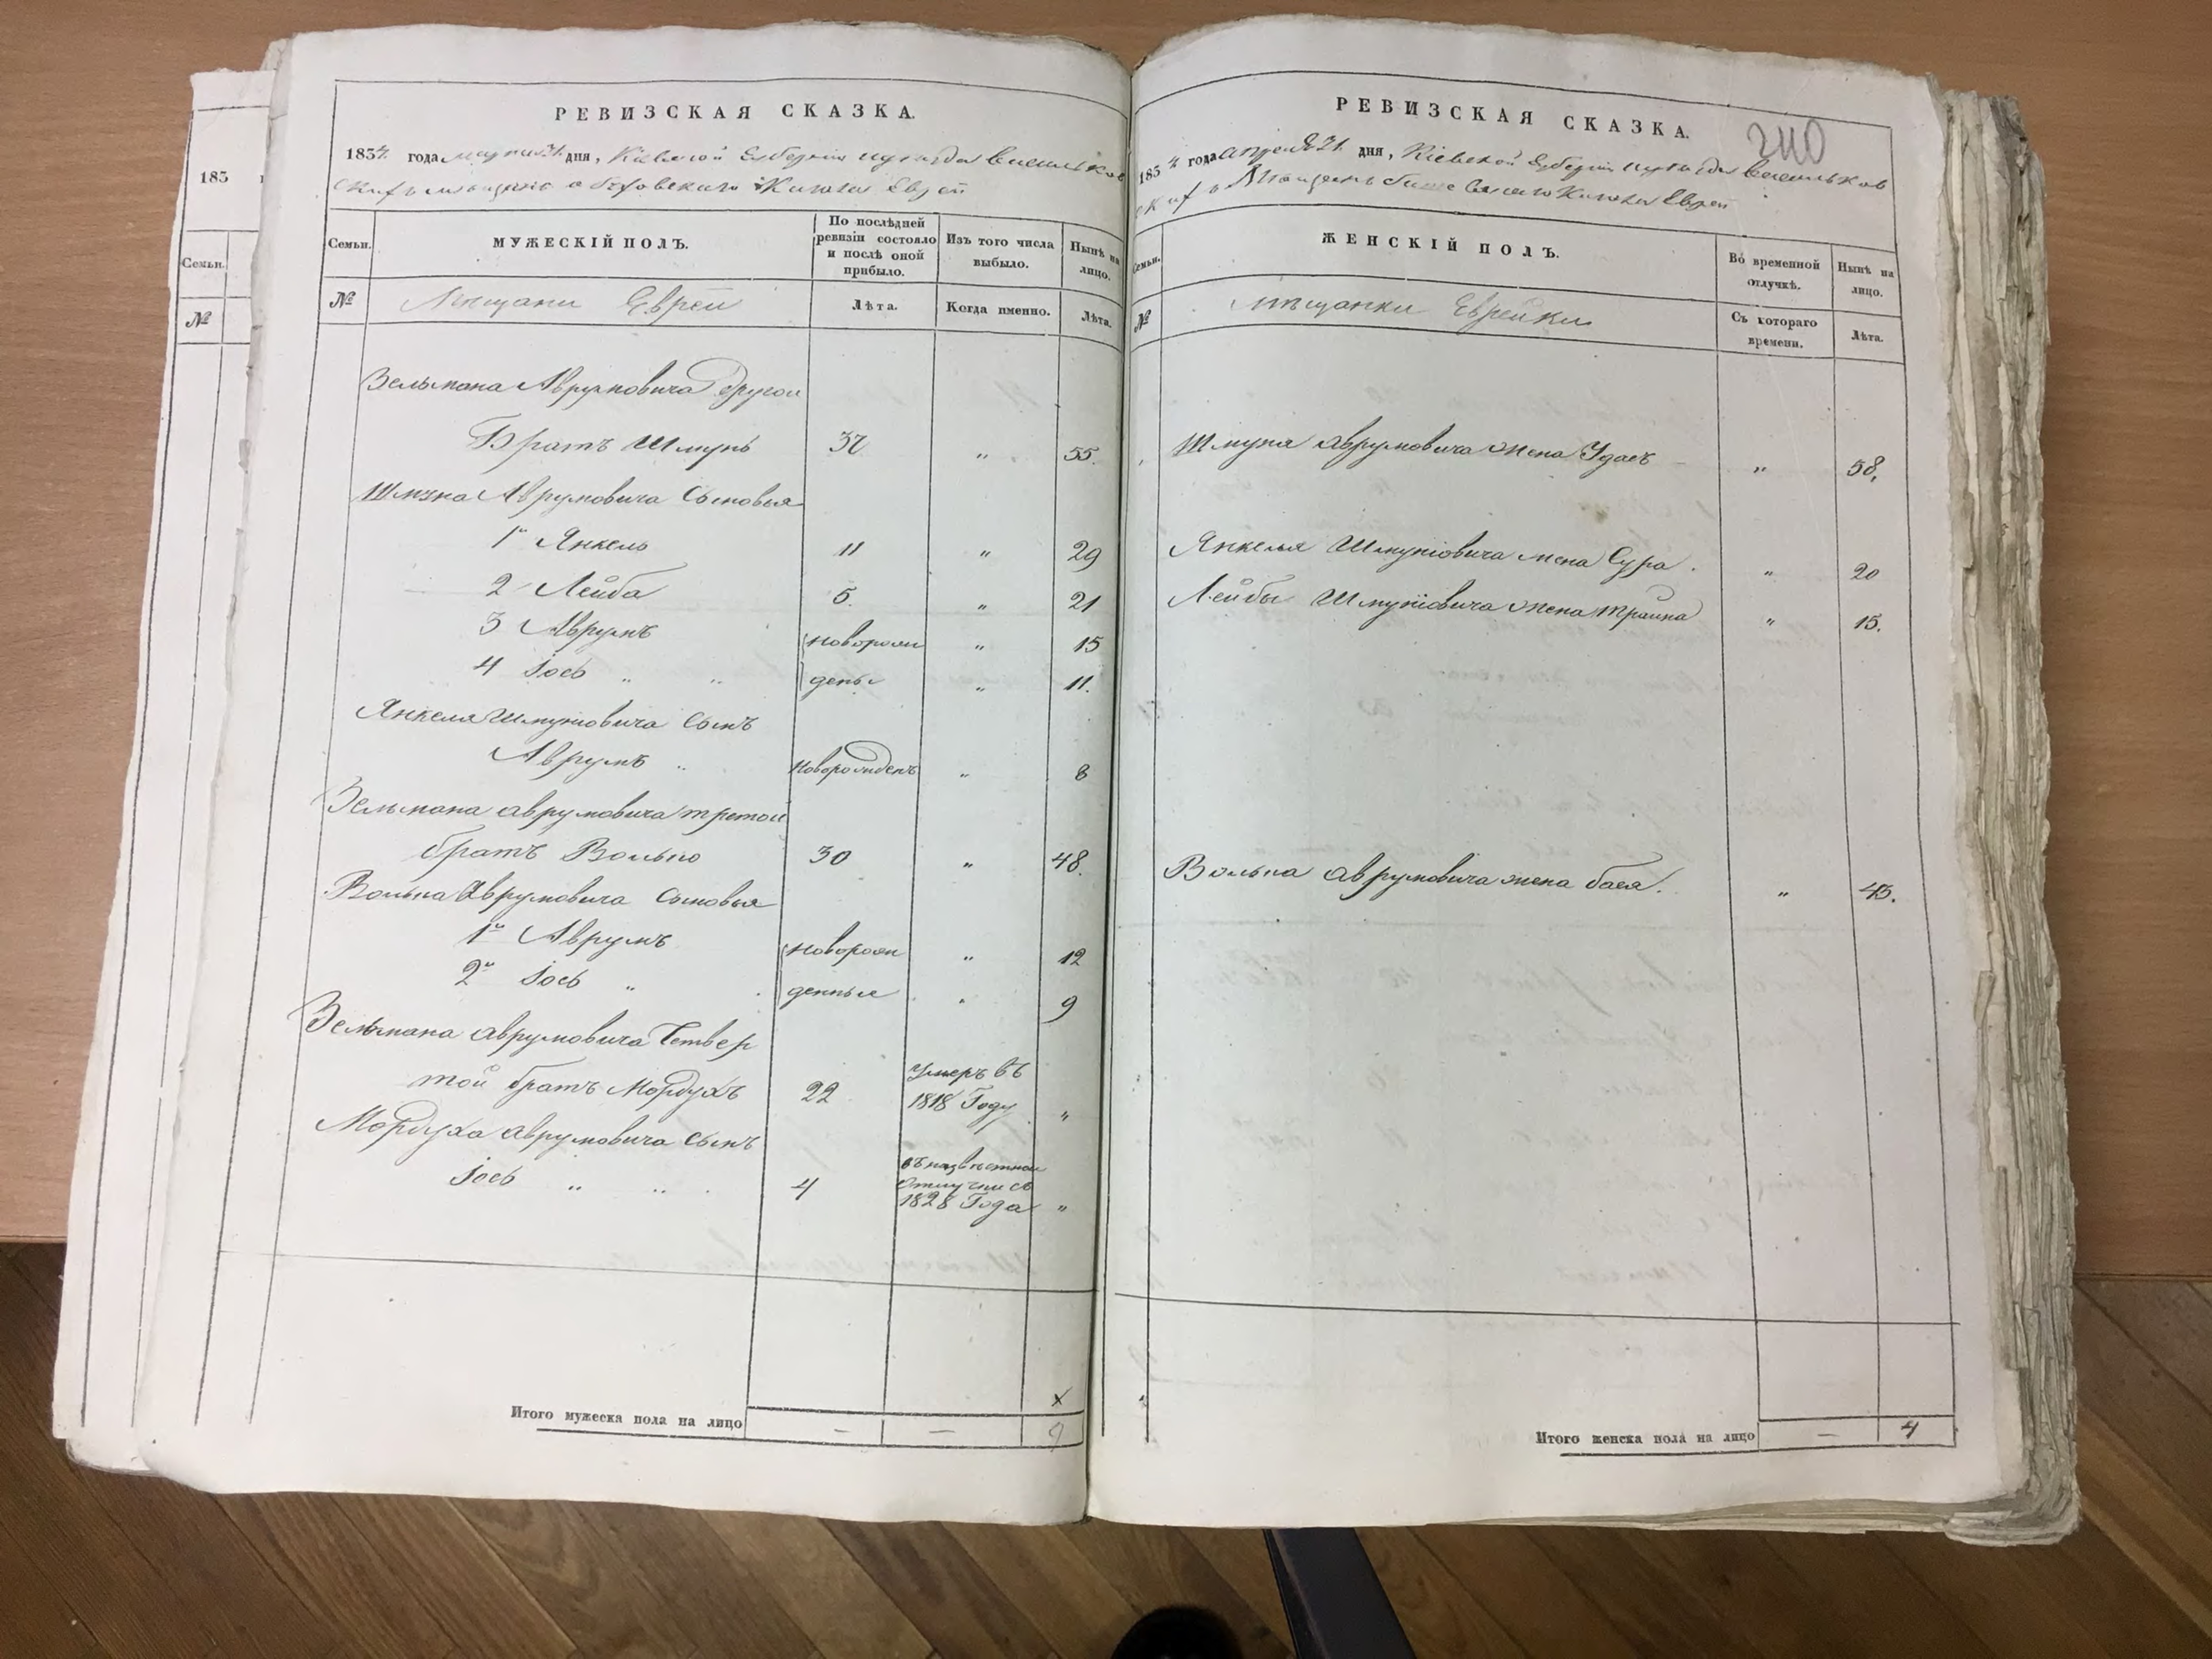 183
Семьи.
№
РЕВИЗСКАЯ СКАЗКА.
1834 года дня, Кіевской Губерніи уезда Васильков
скихъ мещанъ Кагала Еврей
Семьи.
МУЖЕСКІЙ ПОЛЪ.
По послѣдней ревизіи состояло и послѣ оной прибыло.
Изъ того числа выбыло.
Нынѣ на лицо.
№
Мѣщани Евреи
Лѣта.
Когда именно.
Лѣта.
Зельмана Аврумовича другой
Братъ Шмунь 37 " 55.
Шмуна Аврумовича Сыновья
1й Янкель 11 " 29
2 Лейба 5. " 21
3 Аврумъ новорож " 15
4 Іось " " дены " 11.
Янкеля Шмуніовича Сынъ
Аврумъ " Новорожденъ " 8
Зельмана аврумовича третой
братъ Волько 30 " 48.
Волька Аврумовича Сыновья
1й Аврумъ новорож " 12
2й Іось " денные " 9
Зельмана аврумовича Четвер
той братъ Мордухъ 22 умеръ въ 1818 Году "
Мордуха аврумовича Сынъ
Іось " " 4 отлучис 1828 Года "
Итого мужеска пола на лицо — — 9
РЕВИЗСКАЯ СКАЗКА.
240
1834 года апреля 21 дня, Кіевской Губерніи уезда Васильков
скихъ Мещанъ Кагала Еврей
Семьи.
ЖЕНСКІЙ ПОЛЪ.
Во временной отлучкѣ.
Нынѣ на лицо.
№
Мѣщанки Еврейки
Съ котораго времени.
Лѣта.
Шмуня аврумовича жена Удась " 58,
Янкеля Шмуніовича жена Сура. " 20
Лейбы Шмуніовича жена трайна " 15.
Волька аврумовича жена бася. " 45.
Итого женска пола на лицо — 4